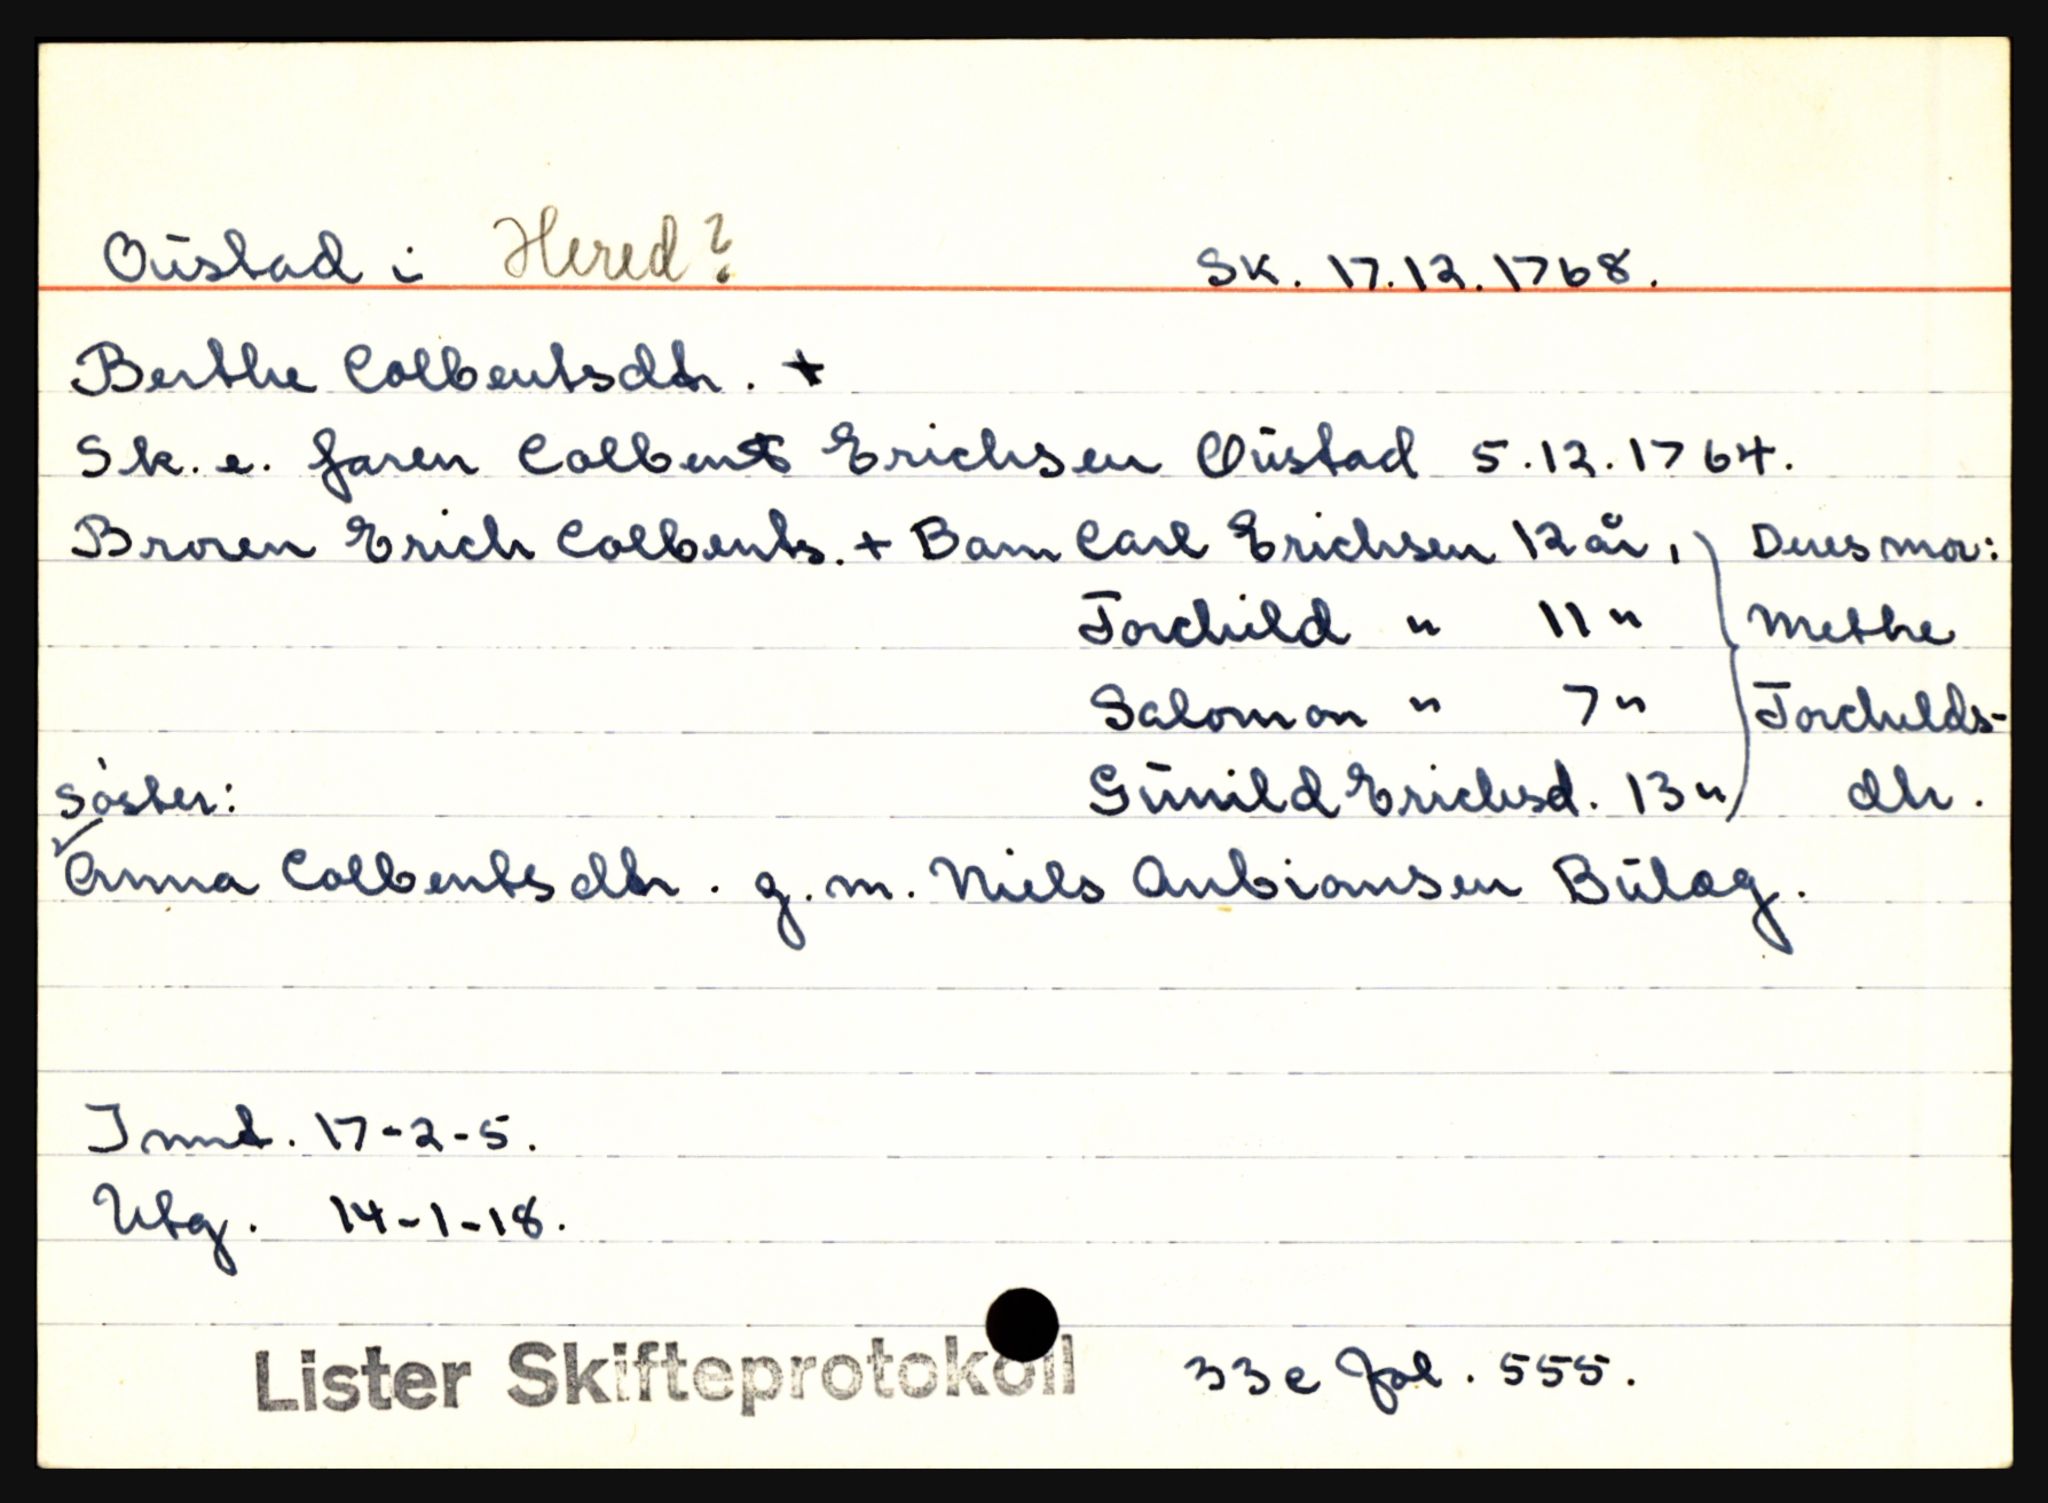 Oustad i Hered? Sk. 17.12.1768.
Berthe Colbentsdtr. +
Sk. e. faren Colbent Erichsen Oustad 5.12.1764.
Broren Erich Colbents. + Barn Carl Erichsen 12 år, Deres mor:
Torchild " 11 " Methe
Salomon " 7 " Torchilds-
søster: Gunild Erichsd. 13 " dtr.
Anna Colbentsdtr. g. m. Niels Anbiønsen Buløg.
Innt. 17-2-5.
Utg. 14-1-18.
Lister Skifteprotokoll 33 e fol. 555.